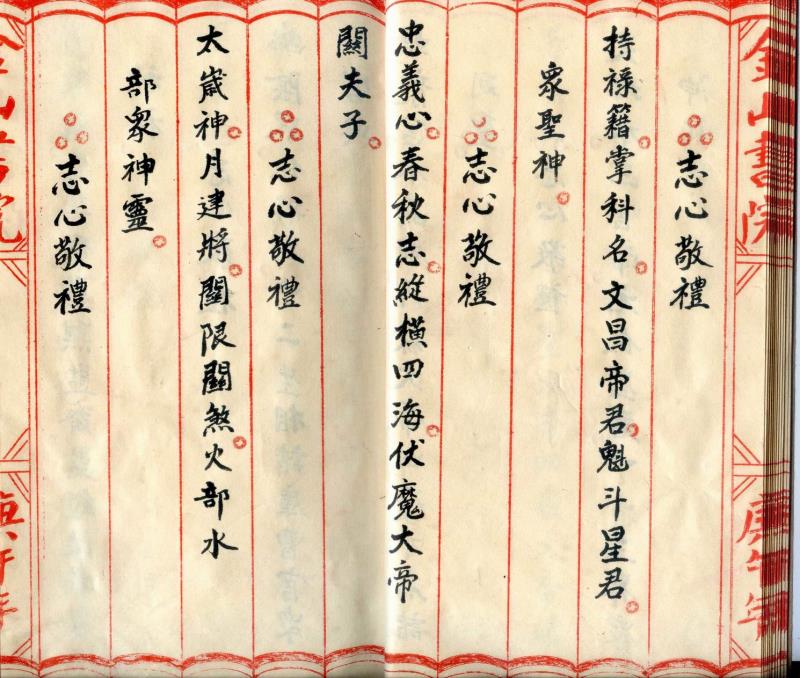 金山書院
庚午年
志心敬禮
持祿籍掌科名文昌帝君魁斗星君
衆聖神
志心敬禮
忠義心春秋志縱橫四海伏魔大帝
關夫子
志心敬禮
太歲神月建將關限關煞火部水
部衆神靈
志心敬禮